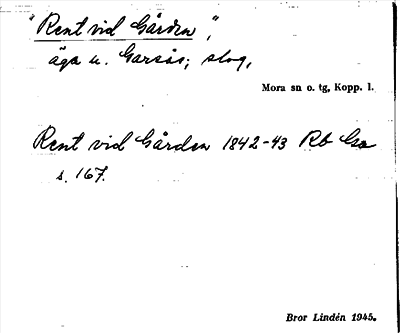 "Rent vid Gården",
äga u. Garsås; skog,
Mora sn o. tg, Kopp. l.
Rent vid Gården 1842-43 Rb Gsa
s. 167.
Bror Lindén 1945.